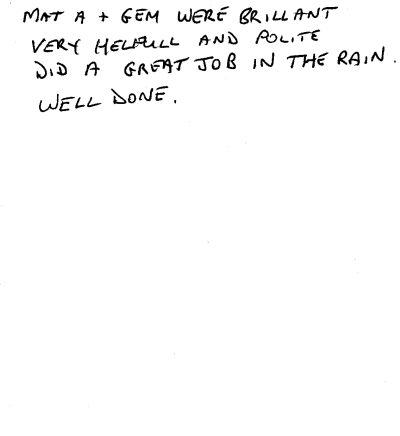 MAT A + GEM WERE BRILLANT
VERY HELPFULL AND POLITE
DID A GREAT JOB IN THE RAIN.
WELL DONE.